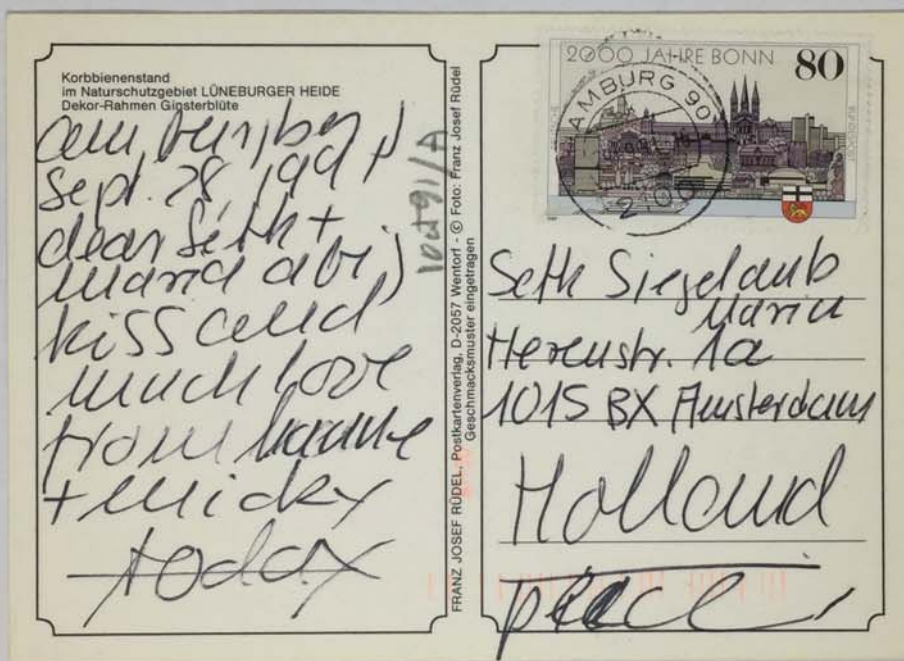 Korbbienenstand
im Naturschutzgebiet LÜNEBURGER HEIDE
Dekor-Rahmen Ginsterblüte
am
Sept. 28, 1991
dear Seth +
Maria
kiss and
much love
from Hanne
+ Micky
today
FRANZ JOSEF RÜDEL, Postkartenverlag, D-2057 Wentorf - © Foto: Franz Josef Rüdel
Geschmacksmuster eingetragen
2000 JAHRE BONN 80
AMBURG 90
210
Seth Siegelaub
Marin
Herenstr. 1a
1015 BX Amsterdam
Holland
peace